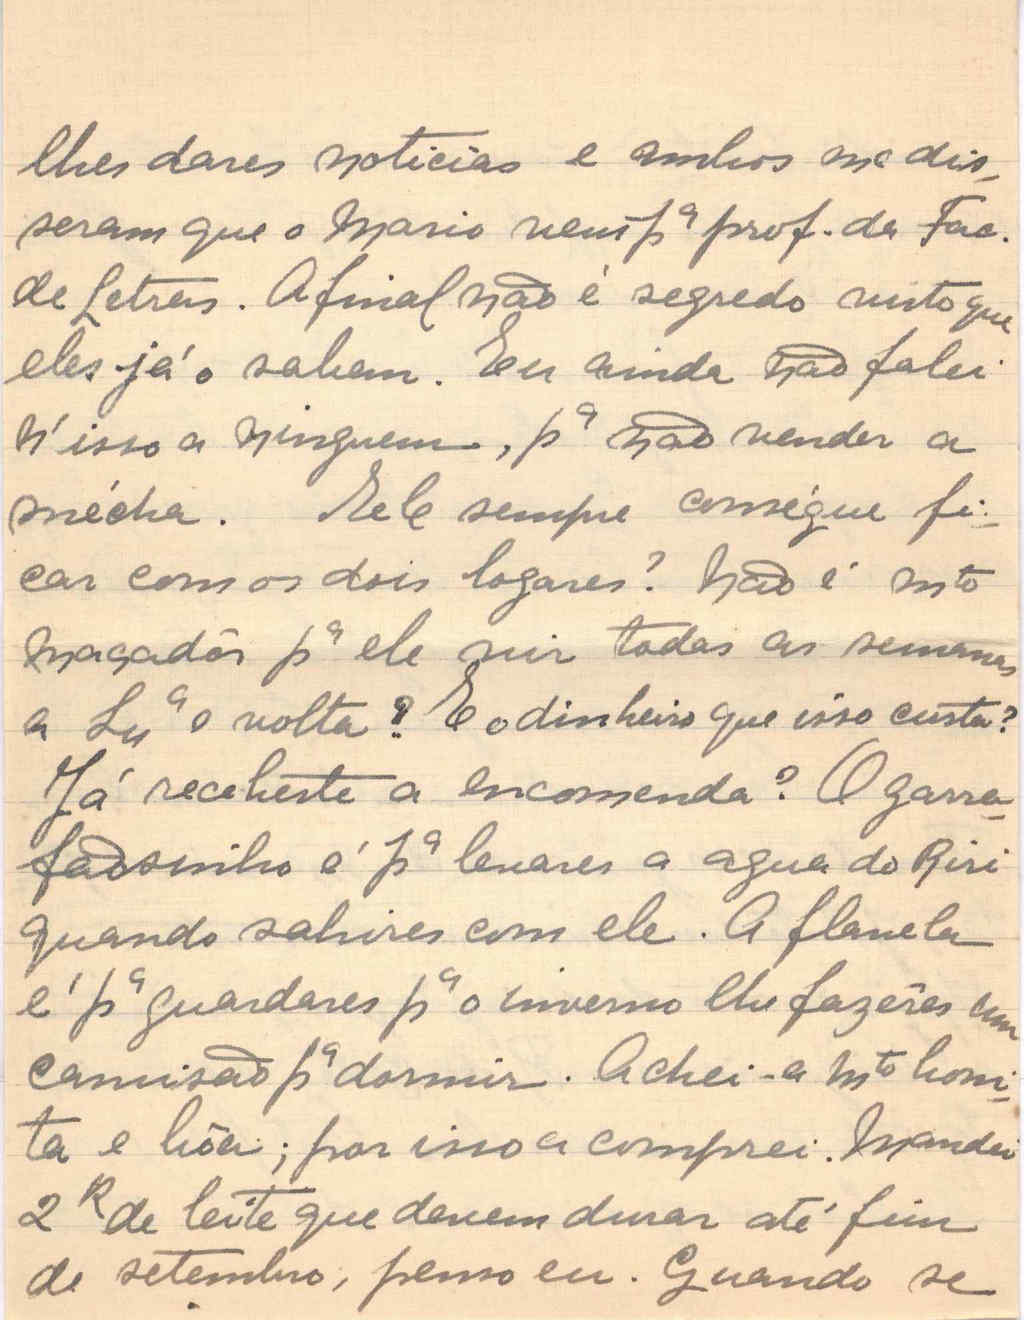 lhes dares noticias e ambos me dis-
seram que o Mario vem pª prof. da Fac.
de Letras. Afinal não é segredo visto que
eles já o sabem. Eu ainda não falei
n'isso a ninguem, pª não vender a
mécha. Ele sempre conségue fi-
car com os dois logares? Não é mto
maçadôr pª ele vir todas as semanas
a Lxª e volta? E o dinheiro que isso custa?
Já recebeste a encomenda? O garra-
fãosinho é pª levares a agua do Riri
quando sahires com ele. A flanela
é pª guardares pª o inverno lhe fazêres um
camisão pª dormir. Achei-a mto boni-
ta e bôa; por isso a comprei. Mandei
2 K de leite que devem durar até fim
de setembro, penso eu. Quando se